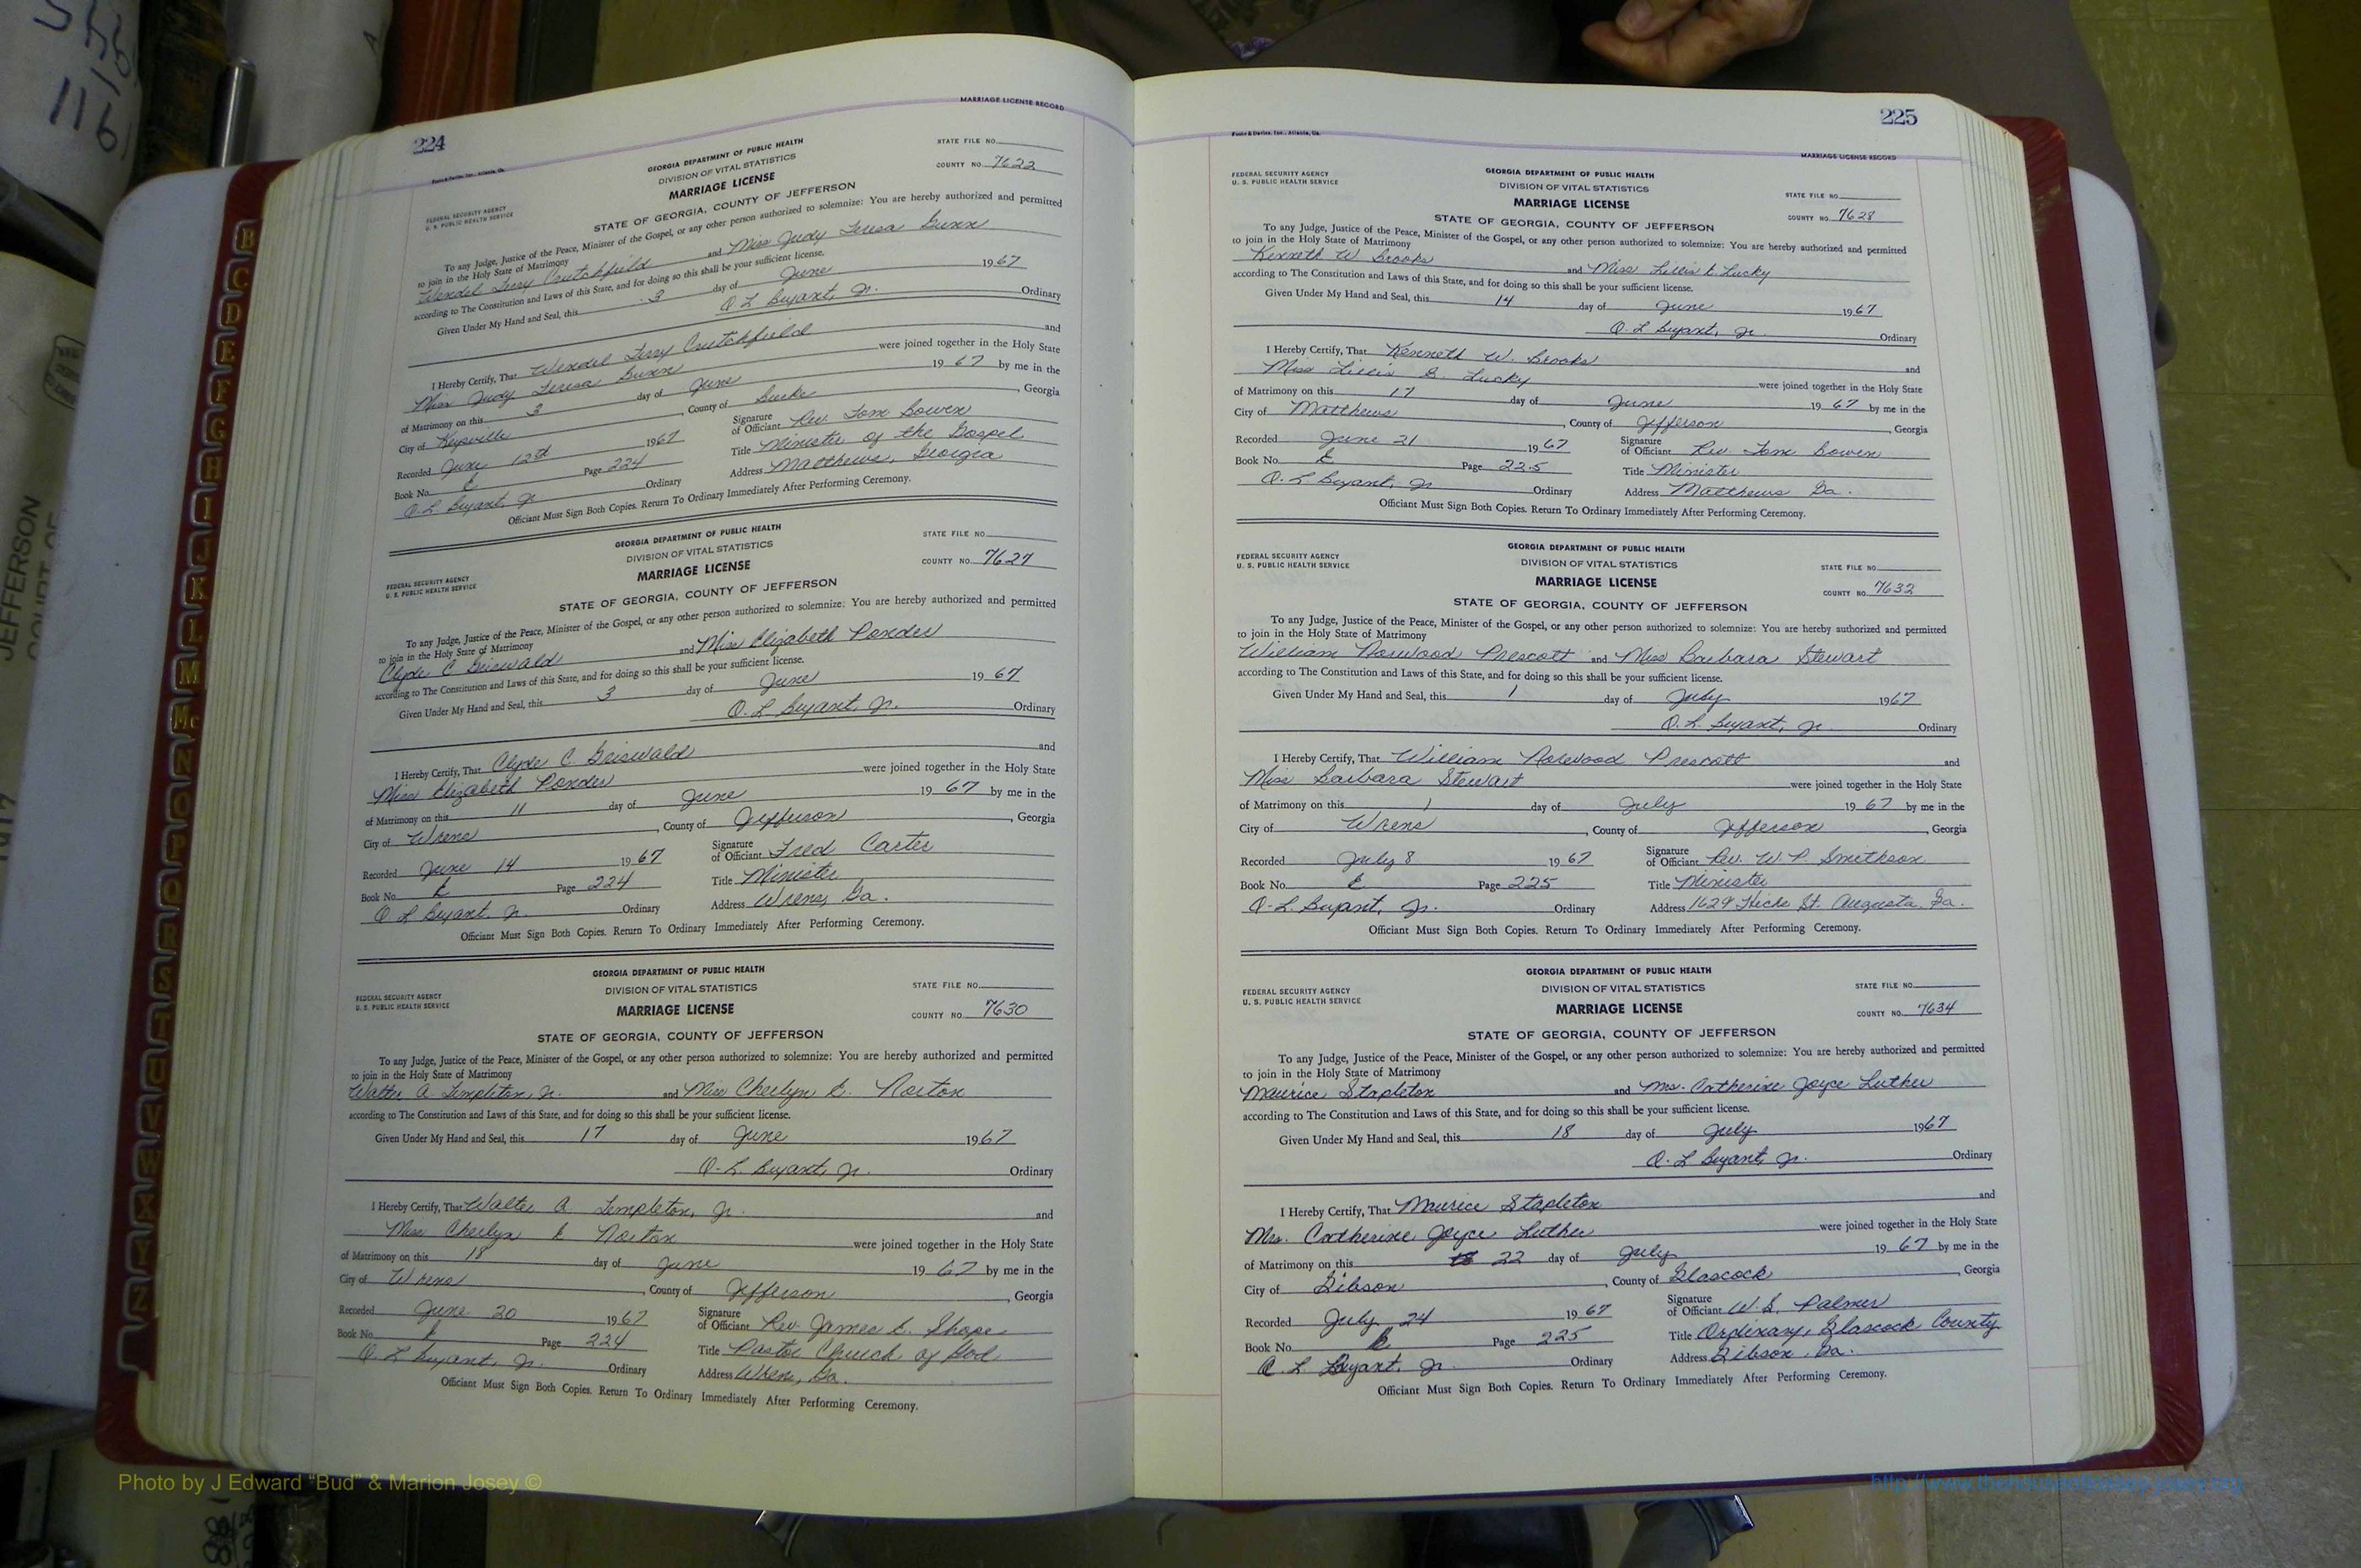 224
MARRIAGE LICENSE RECORD
Foote & Davies, Inc., Atlanta, Ga.
FEDERAL SECURITY AGENCY
U. S. PUBLIC HEALTH SERVICE
GEORGIA DEPARTMENT OF PUBLIC HEALTH
DIVISION OF VITAL STATISTICS
MARRIAGE LICENSE
STATE FILE NO.
COUNTY NO. 7622
STATE OF GEORGIA, COUNTY OF JEFFERSON
To any Judge, Justice of the Peace, Minister of the Gospel, or any other person authorized to solemnize: You are hereby authorized and permitted
to join in the Holy State of Matrimony
Wendel Terry Crutchfield and Miss Judy Teresa Gunn
according to The Constitution and Laws of this State, and for doing so this shall be your sufficient license.
Given Under My Hand and Seal, this 3 day of June 1967
Q. L. Bryant, Jr. Ordinary
I Hereby Certify, That Wendel Terry Crutchfield and
Miss Judy Teresa Gunn were joined together in the Holy State
of Matrimony on this 3 day of June 1967 by me in the
City of Keysville, County of Burke, Georgia
Recorded June 12th 1967 Signature of Officiant Rev. Tom Bowen
Book No. E Page 224 Title Minister of the Gospel
Q L Bryant, Jr Ordinary Address Matthews, Georgia
Officiant Must Sign Both Copies. Return To Ordinary Immediately After Performing Ceremony.
FEDERAL SECURITY AGENCY
U. S. PUBLIC HEALTH SERVICE
GEORGIA DEPARTMENT OF PUBLIC HEALTH
DIVISION OF VITAL STATISTICS
MARRIAGE LICENSE
STATE FILE NO.
COUNTY NO. 7627
STATE OF GEORGIA, COUNTY OF JEFFERSON
To any Judge, Justice of the Peace, Minister of the Gospel, or any other person authorized to solemnize: You are hereby authorized and permitted
to join in the Holy State of Matrimony
Clyde C Griswald and Miss Elizabeth Ponder
according to The Constitution and Laws of this State, and for doing so this shall be your sufficient license.
Given Under My Hand and Seal, this 3 day of June 1967
Q. L Bryant, Jr. Ordinary
I Hereby Certify, That Clyde C Griswald and
Miss Elizabeth Ponder were joined together in the Holy State
of Matrimony on this 11 day of June 1967 by me in the
City of Wrens, County of Jefferson, Georgia
Recorded June 14 1967 Signature of Officiant Fred Carter
Book No. E Page 224 Title Minister
Q L Bryant, Jr. Ordinary Address Wrens, Ga.
Officiant Must Sign Both Copies. Return To Ordinary Immediately After Performing Ceremony.
FEDERAL SECURITY AGENCY
U. S. PUBLIC HEALTH SERVICE
GEORGIA DEPARTMENT OF PUBLIC HEALTH
DIVISION OF VITAL STATISTICS
MARRIAGE LICENSE
STATE FILE NO.
COUNTY NO. 7630
STATE OF GEORGIA, COUNTY OF JEFFERSON
To any Judge, Justice of the Peace, Minister of the Gospel, or any other person authorized to solemnize: You are hereby authorized and permitted
to join in the Holy State of Matrimony
Walter A Templeton, Jr. and Miss Cherlyn E. Norton
according to The Constitution and Laws of this State, and for doing so this shall be your sufficient license.
Given Under My Hand and Seal, this 17 day of June 1967
Q. L Bryant, Jr. Ordinary
I Hereby Certify, That Walter A. Templeton, Jr. and
Miss Cherlyn E Norton were joined together in the Holy State
of Matrimony on this 18 day of June 1967 by me in the
City of Wrens, County of Jefferson, Georgia
Recorded June 20 1967 Signature of Officiant Rev James E. Shope
Book No. E Page 224 Title Pastor Church of God
Q. L Bryant, Jr. Ordinary Address Wrens, Ga.
Officiant Must Sign Both Copies. Return To Ordinary Immediately After Performing Ceremony.
225
Foote & Davies, Inc., Atlanta, Ga.
MARRIAGE LICENSE RECORD
FEDERAL SECURITY AGENCY
U. S. PUBLIC HEALTH SERVICE
GEORGIA DEPARTMENT OF PUBLIC HEALTH
DIVISION OF VITAL STATISTICS
MARRIAGE LICENSE
STATE FILE NO.
COUNTY NO. 7628
STATE OF GEORGIA, COUNTY OF JEFFERSON
To any Judge, Justice of the Peace, Minister of the Gospel, or any other person authorized to solemnize: You are hereby authorized and permitted
to join in the Holy State of Matrimony
Kenneth W Brooks and Miss Lillis E Lucky
according to The Constitution and Laws of this State, and for doing so this shall be your sufficient license.
Given Under My Hand and Seal, this 14 day of June 1967
Q. L Bryant, Jr. Ordinary
I Hereby Certify, That Kenneth W. Brooks and
Miss Lillis E. Lucky were joined together in the Holy State
of Matrimony on this 17 day of June 1967 by me in the
City of Matthews, County of Jefferson, Georgia
Recorded June 21 1967 Signature of Officiant Rev Tom Bowen
Book No. E Page 225 Title Minister
Q. L Bryant, Jr Ordinary Address Matthews Ga.
Officiant Must Sign Both Copies. Return To Ordinary Immediately After Performing Ceremony.
FEDERAL SECURITY AGENCY
U. S. PUBLIC HEALTH SERVICE
GEORGIA DEPARTMENT OF PUBLIC HEALTH
DIVISION OF VITAL STATISTICS
MARRIAGE LICENSE
STATE FILE NO.
COUNTY NO. 7632
STATE OF GEORGIA, COUNTY OF JEFFERSON
To any Judge, Justice of the Peace, Minister of the Gospel, or any other person authorized to solemnize: You are hereby authorized and permitted
to join in the Holy State of Matrimony
William Norwood Prescott and Miss Barbara Stewart
according to The Constitution and Laws of this State, and for doing so this shall be your sufficient license.
Given Under My Hand and Seal, this 1 day of July 1967
Q. L. Bryant, Jr. Ordinary
I Hereby Certify, That William Norwood Prescott and
Miss Barbara Stewart were joined together in the Holy State
of Matrimony on this 1 day of July 1967 by me in the
City of Wrens, County of Jefferson, Georgia
Recorded July 8 1967 Signature of Officiant Rev. W. P. Smithson
Book No. E Page 225 Title Minister
Q. L. Bryant, Jr. Ordinary Address 1629 Hicks St. Augusta, Ga.
Officiant Must Sign Both Copies. Return To Ordinary Immediately After Performing Ceremony.
FEDERAL SECURITY AGENCY
U. S. PUBLIC HEALTH SERVICE
GEORGIA DEPARTMENT OF PUBLIC HEALTH
DIVISION OF VITAL STATISTICS
MARRIAGE LICENSE
STATE FILE NO.
COUNTY NO. 7634
STATE OF GEORGIA, COUNTY OF JEFFERSON
To any Judge, Justice of the Peace, Minister of the Gospel, or any other person authorized to solemnize: You are hereby authorized and permitted
to join in the Holy State of Matrimony
Maurice Stapleton and Mrs. Catherine Joyce Luther
according to The Constitution and Laws of this State, and for doing so this shall be your sufficient license.
Given Under My Hand and Seal, this 18 day of July 1967
Q. L Bryant, Jr. Ordinary
I Hereby Certify, That Maurice Stapleton and
Mrs. Catherine Joyce Luther were joined together in the Holy State
of Matrimony on this 22 day of July 1967 by me in the
City of Gibson, County of Glascock, Georgia
Recorded July 24 1967 Signature of Officiant W. S. Palmer
Book No. E Page 225 Title Ordinary, Glascock County
Q. L. Bryant, Jr. Ordinary Address Gibson, Ga.
Officiant Must Sign Both Copies. Return To Ordinary Immediately After Performing Ceremony.
B
C
D
E
F
G
H
I
J
K
L
M
Mc
N
O
P
Q
R
S
T
U
V
W
X
Y
Z
JEFFERSON
Photo by J Edward “Bud” & Marion Josey ©